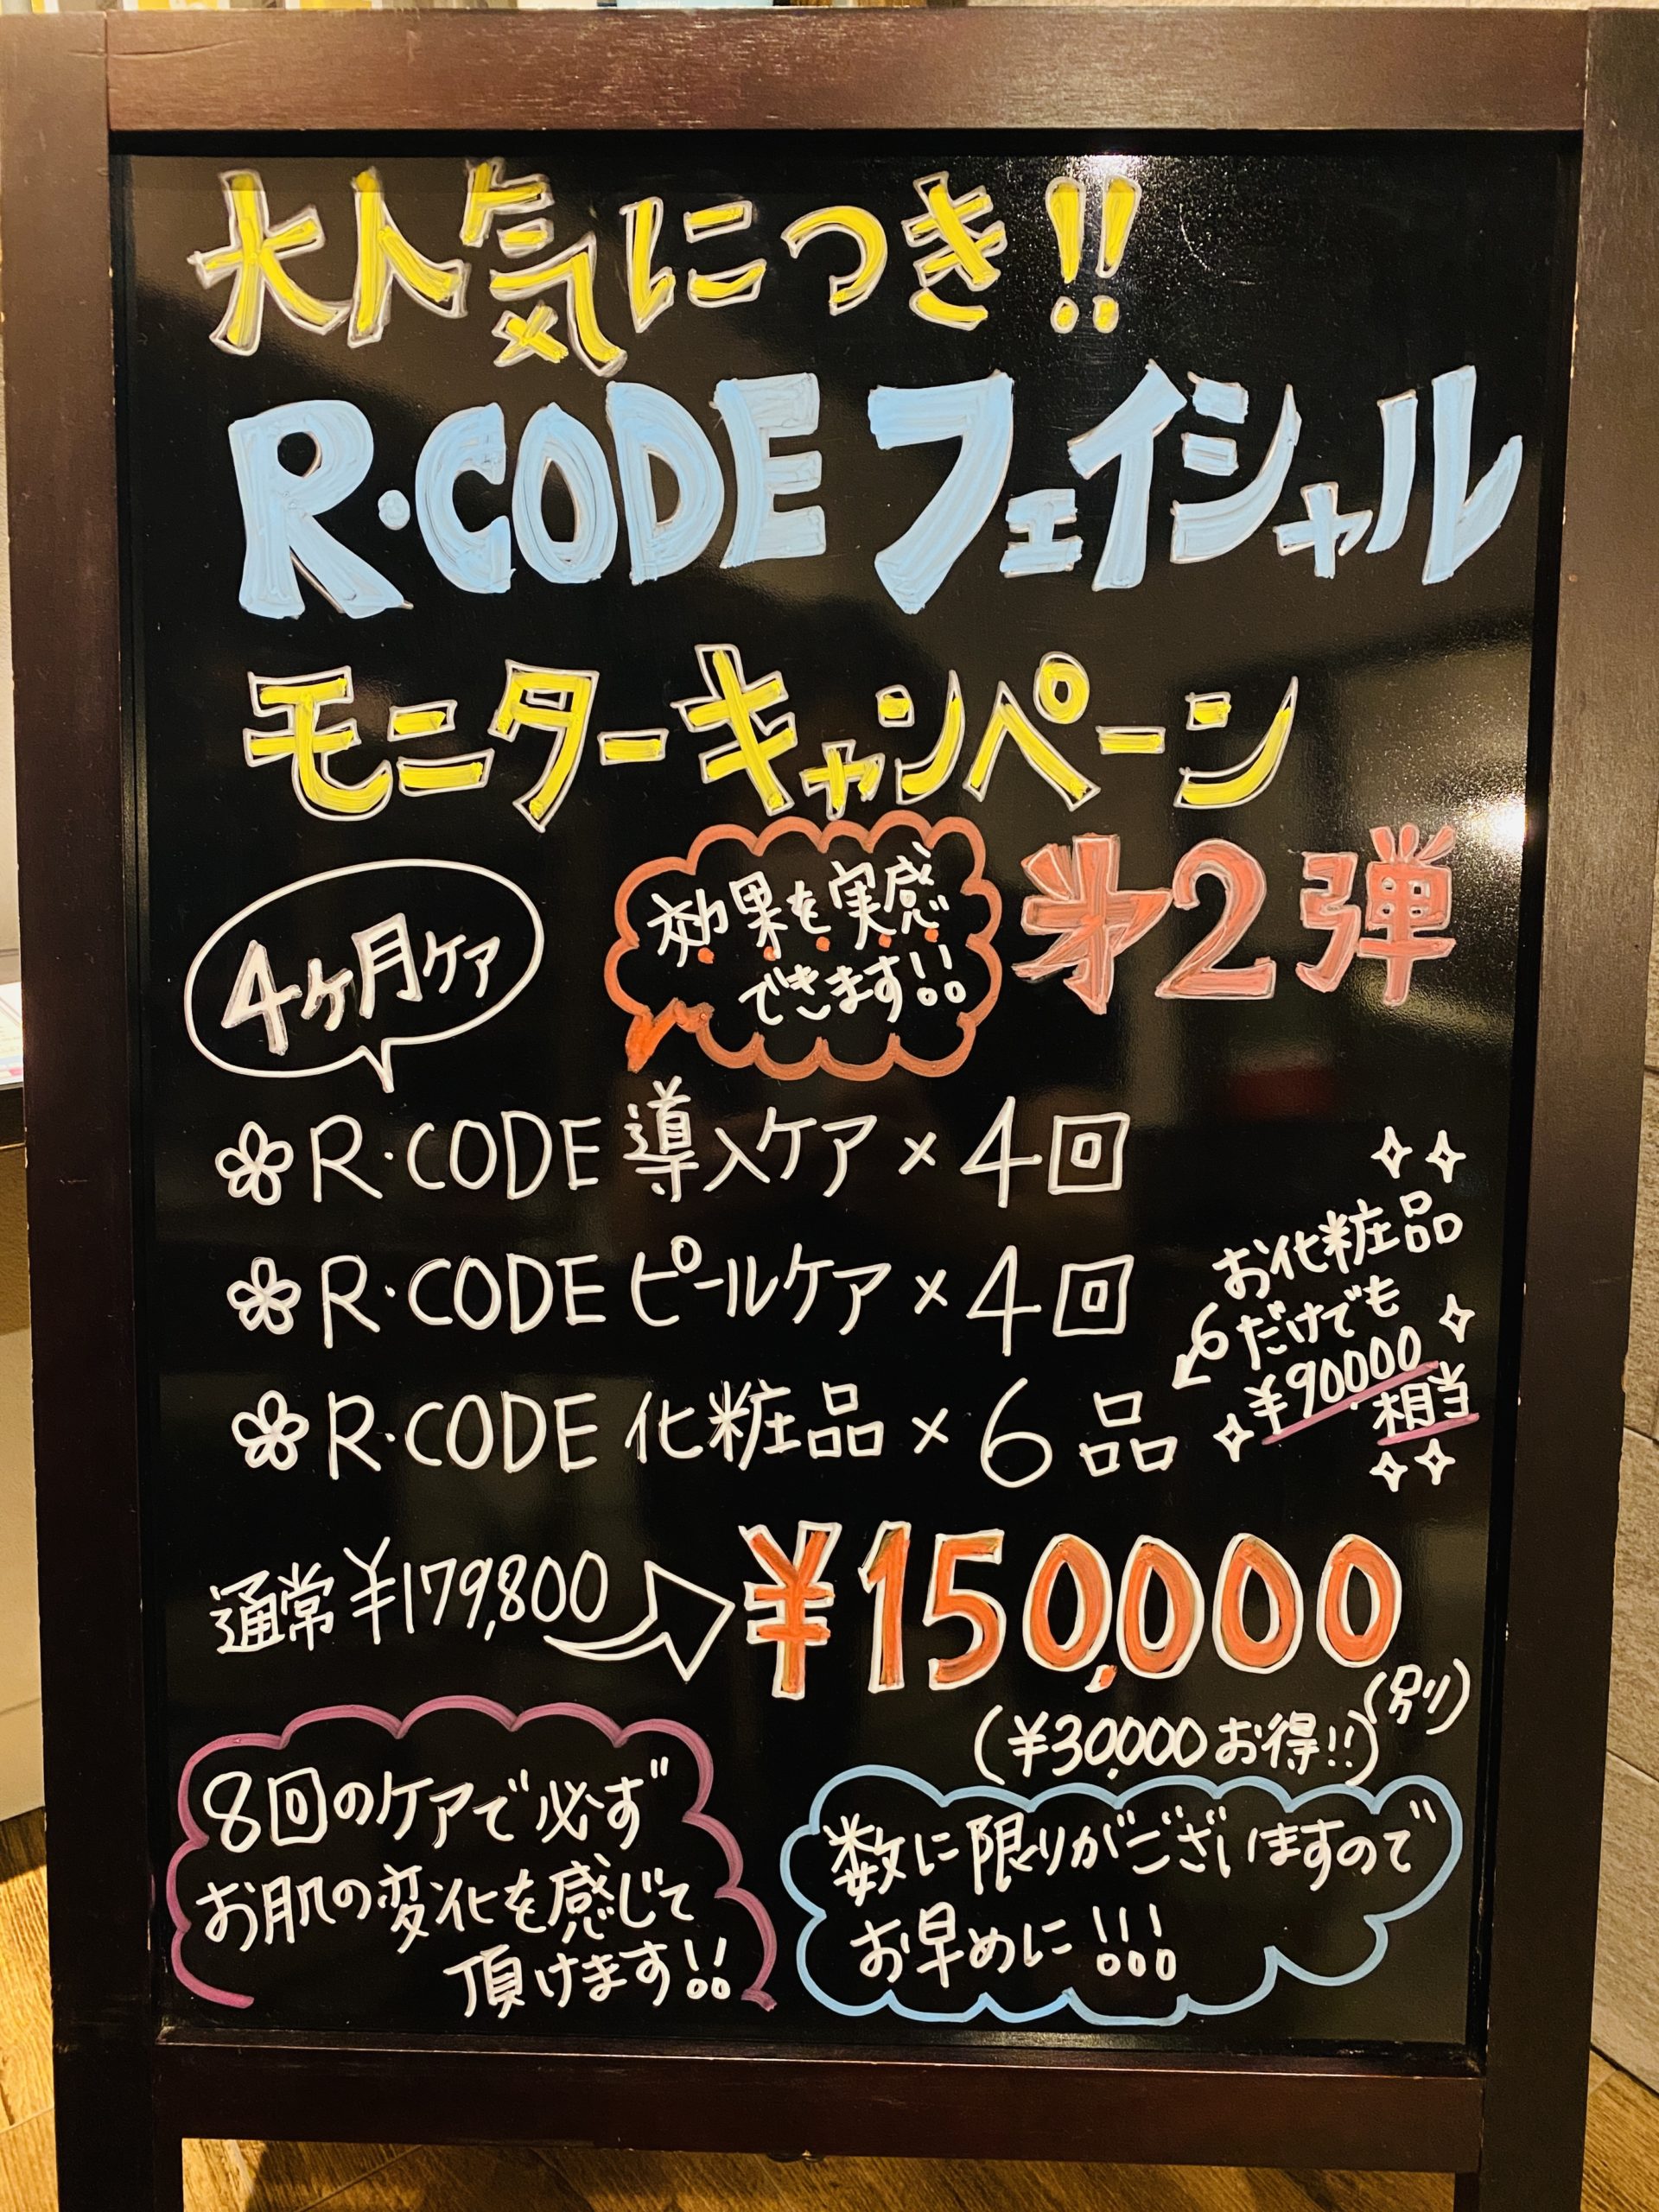 大人気につき!!
R・CODE フェイシャル
モニターキャンペーン
第2弾
効果を実感
できます!!
4ヶ月ケア
R・CODE 導入ケア×4回
R・CODE ピールケア×4回
R・CODE 化粧品×6品
お化粧品
だけでも
¥90.000
相当
通常 ¥179,800
¥150,000
(別)
(¥30,000お得!!)
8回のケアで必ず
お肌の変化を感じて
頂けます!!
数に限りがございますので
お早めに!!!